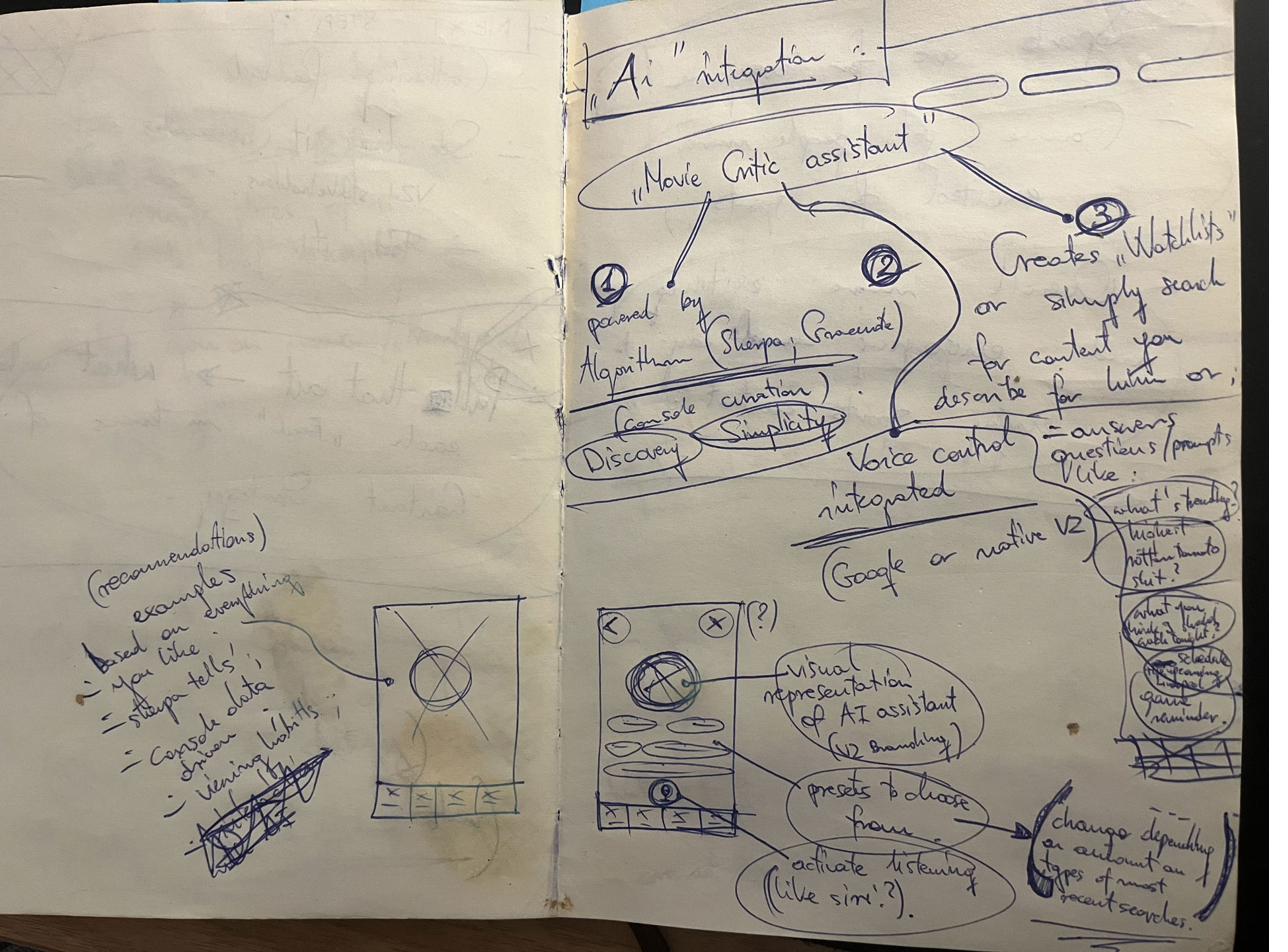 (recommendations)
examples
based on everything
- you like.
- sherpa tells;
- console data
driven
- viewing habits;
„Ai" integration :
„Movie Critic assistant"
1
powered by
Algorithm (Sherpa;
(console curation)
Discovery
Simplicity
2
Voice control
integrated
(Google or native V2)
3
Creates „Watchlists"
or simply search
for content you
describe for him or;
- answers
questions/prompts
like:
what's trending?
highest
rotten tomato
shit?
what you
think I should
watch tonight?
schedule
game
reminder.
< x (?)
visual
representation
of AI assistant
(V2 Branding)
presets to choose
from.
activate listening
(like siri?).
(change depending
on amount on
types of most
recent searches.)